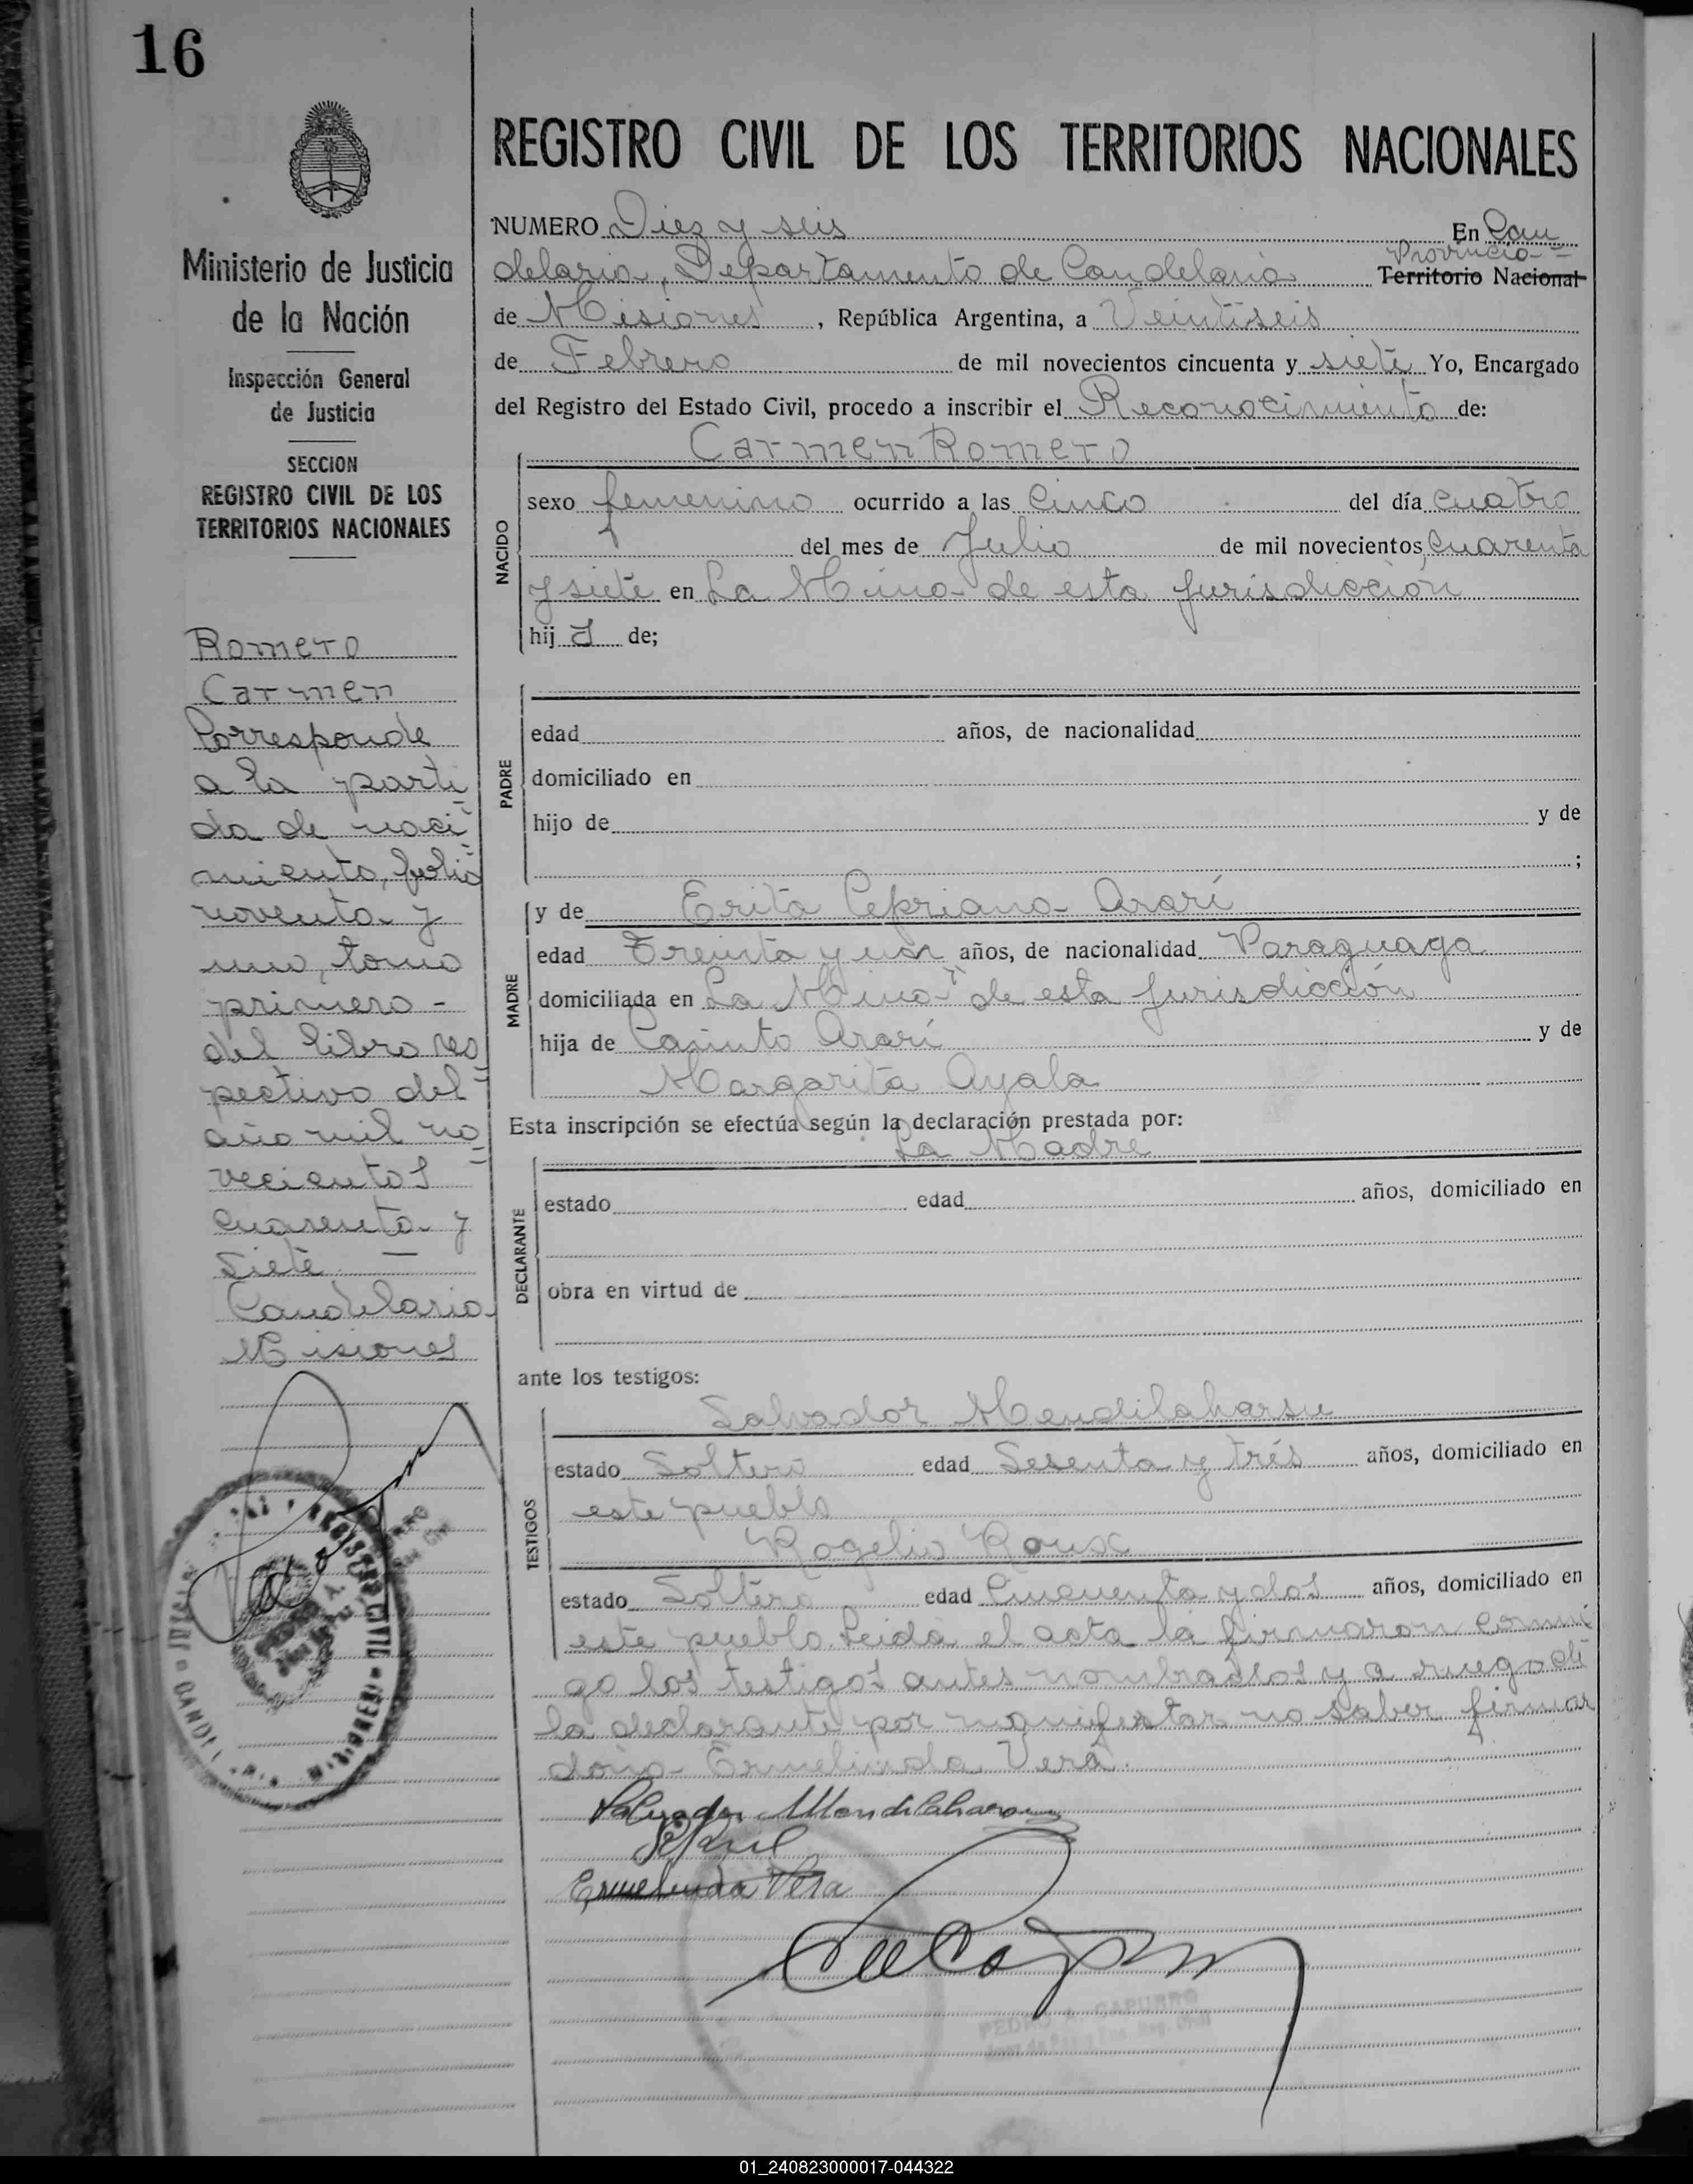 16
Ministerio de Justicia
de la Nación
Inspección General
de Justicia
SECCION
REGISTRO CIVIL DE LOS
TERRITORIOS NACIONALES
Romero
Carmen
Corresponde
a la parti-
da de naci-
miento, folio
noventa y
uno, tomo
primero -
del libro res-
pectivo del
año mil no-
vecientos
cuarenta y
siete. —
Candelaria
Misiones
REGISTRO CIVIL DE LOS TERRITORIOS NACIONALES
NUMERO Diez y seis En Can-
Provincia
delaria, Departamento de Candelaria Territorio Nacional
de Misiones, República Argentina, a Veintiseis
de Febrero de mil novecientos cincuenta y siete Yo, Encargado
del Registro del Estado Civil, procedo a inscribir el Reconocimiento de:
Carmen Romero
NACIDO
sexo femenino ocurrido a las Cinco del día cuatro
del mes de Julio de mil novecientos cuarenta
y siete en La Mina de esta jurisdicción
hija de;
PADRE
edad años, de nacionalidad
domiciliado en
hijo de y de
;
MADRE
y de Erita Cepriana Ararí
edad Treinta y un años, de nacionalidad Paraguaya
domiciliada en La Mina de esta jurisdicción
hija de Ararí y de
Margarita Ayala
Esta inscripción se efectúa según la declaración prestada por:
La Madre
DECLARANTE
estado edad años, domiciliado en
obra en virtud de
ante los testigos:
TESTIGOS
Salvador Mendilaharsu
estado Soltero edad Sesenta y trés años, domiciliado en
este pueblo
Rogelio Roux
estado Soltero edad Cincuenta y dos años, domiciliado en
este pueblo. Leida el acta la firmaron conmi
go los testigos antes nombrados y a ruego de
la declarante por manifestar no saber firmar
doña Ermelinda Vera.
Salvador Mendilaharsu
Ermelinda Vera
PEDRO A. CAPURRO
01_240823000017-044322